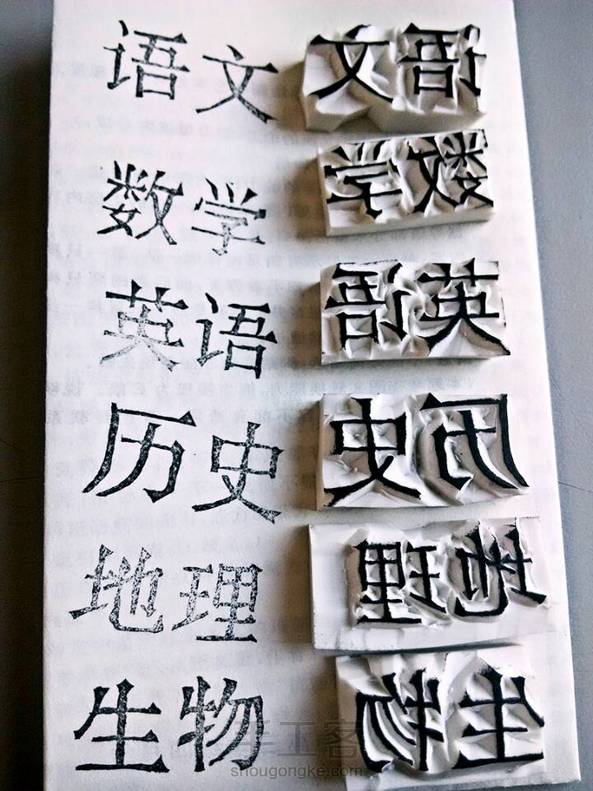 语文
数学
英语
历史
地理
生物
手工客
shougongke.com